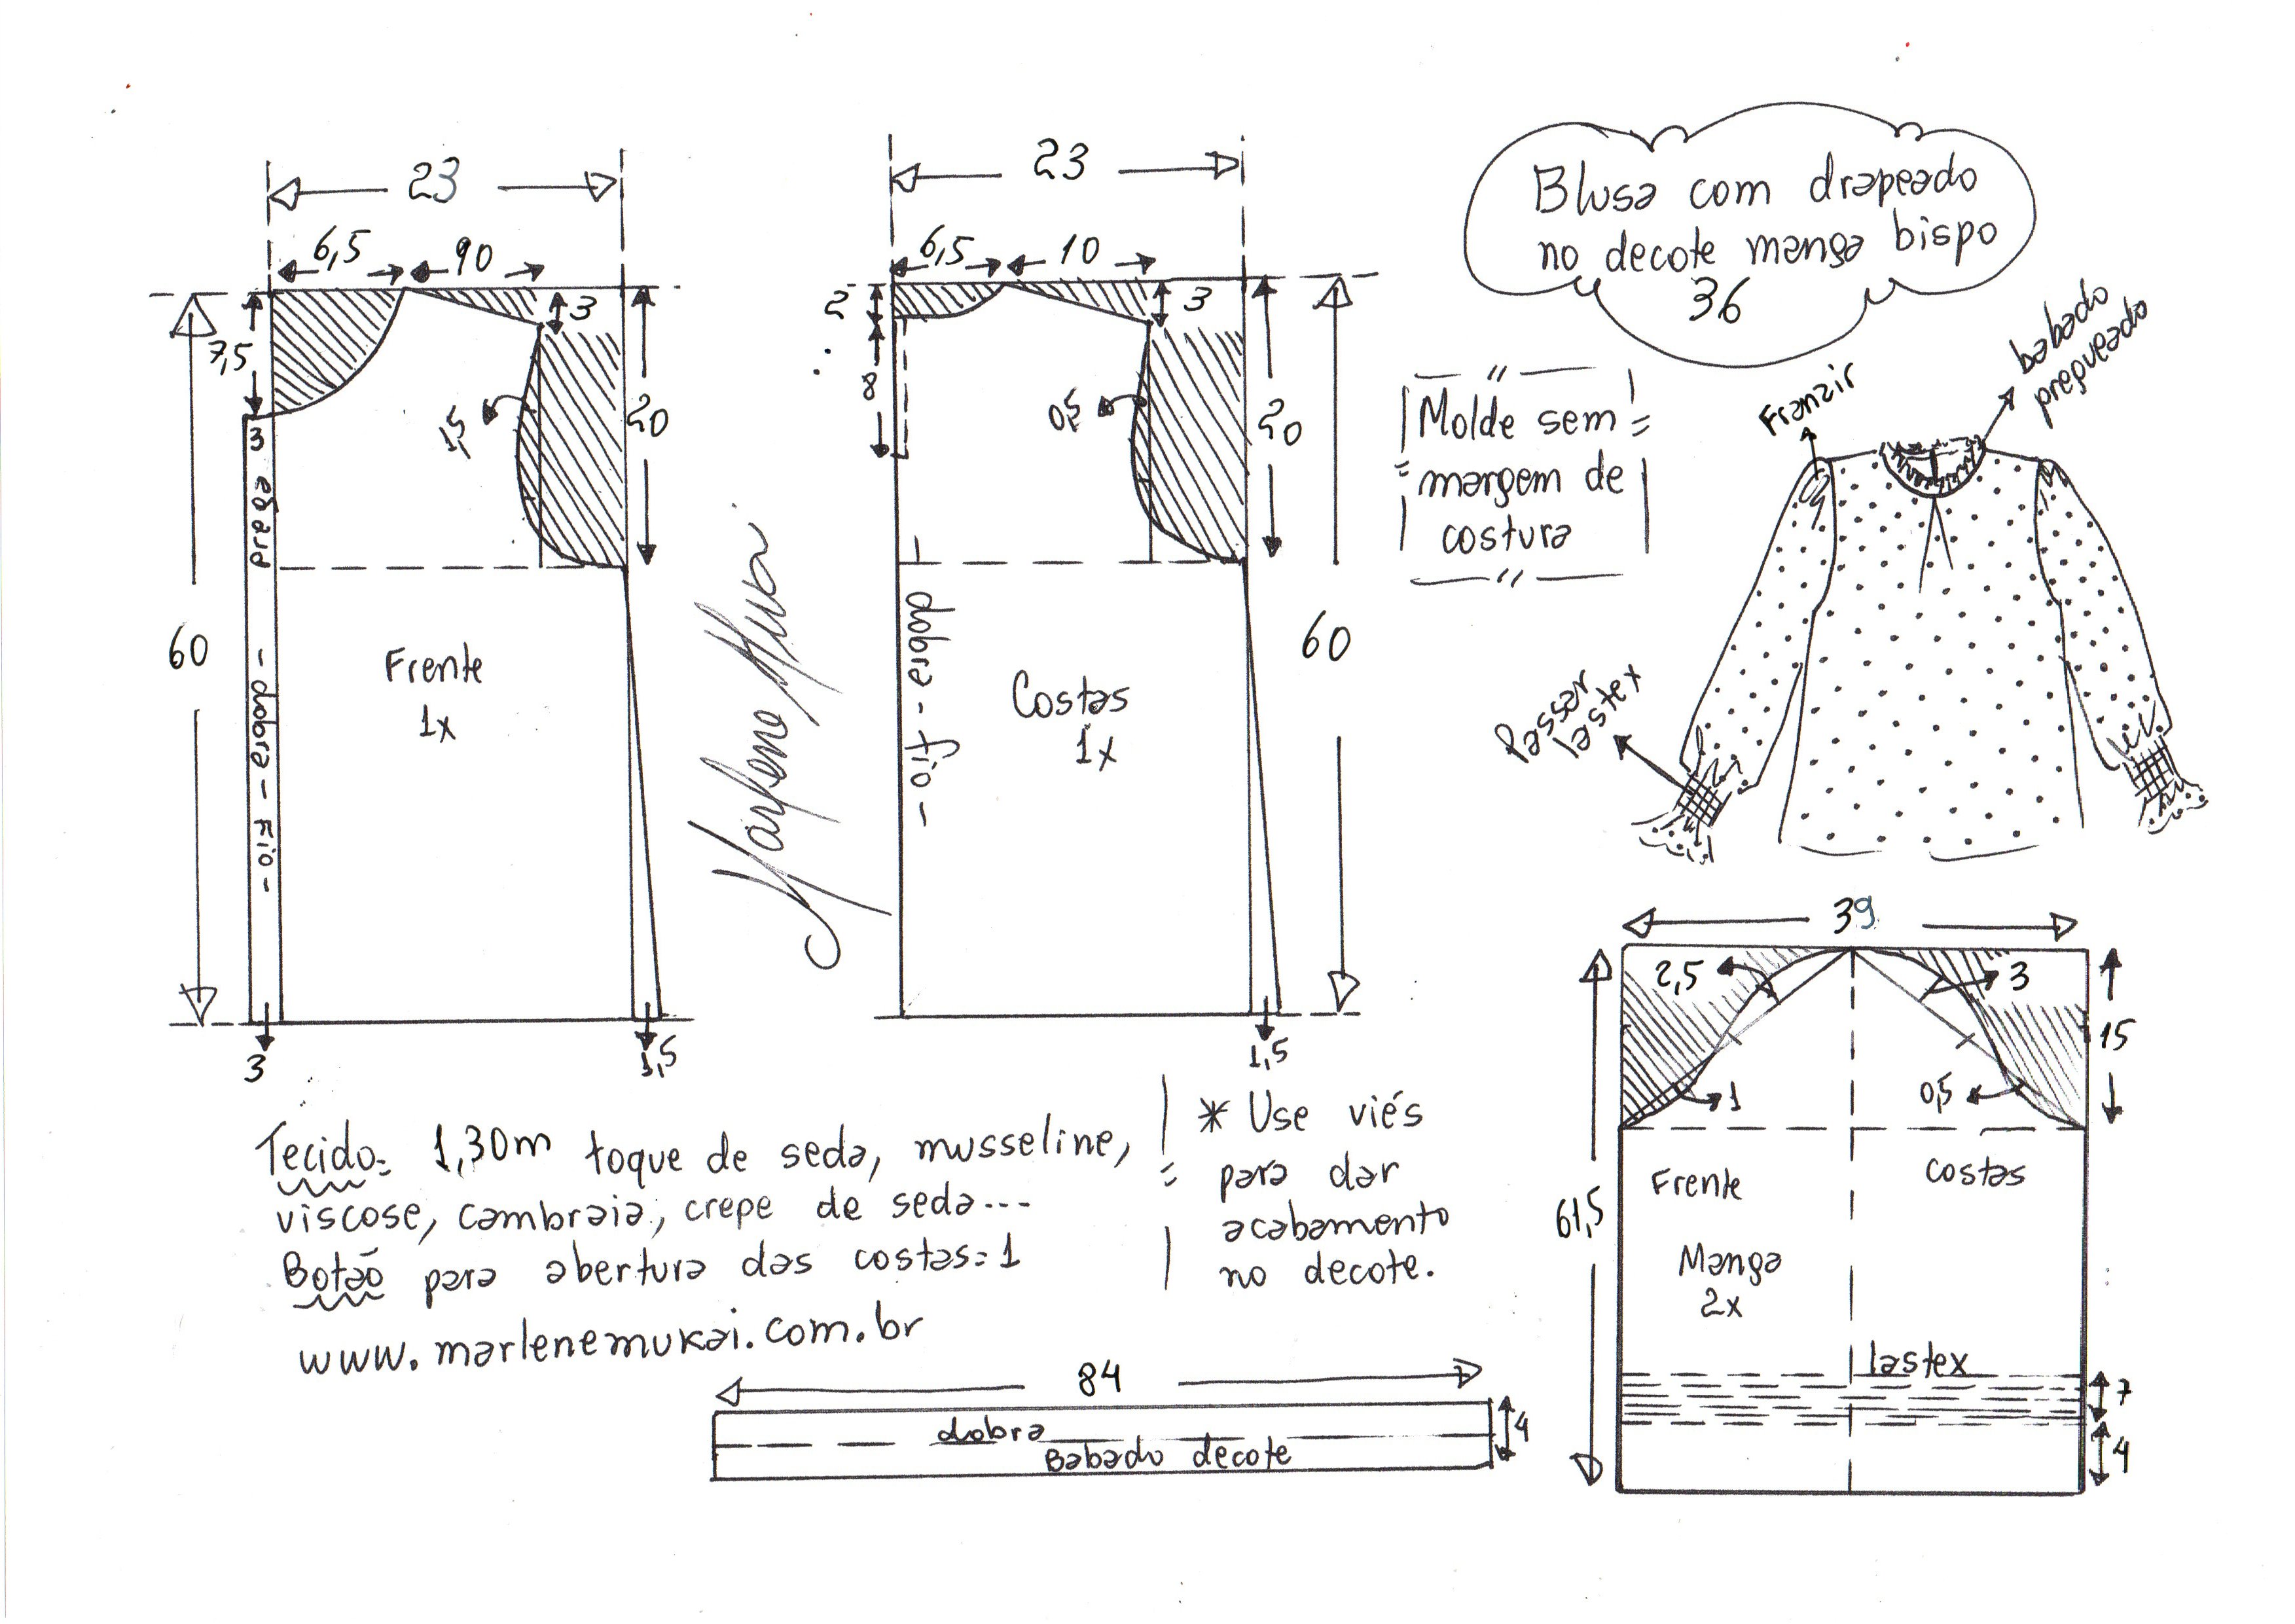 23
6,5
90
3
7,5
20
1,5
3
prega - dobra - Fio -
60
Frente
1x
3
1,5
23
6,5
10
2
3
8
0,5
20
dobra - fio -
Costas
1x
60
1,5
Blusa com drapeado
no decote manga bispo
36
Molde sem
margem de
costura
Franzir
babado
pregueado
Passar
lastex
39
2,5
3
15
1
0,5
Frente
Costas
61,5
Manga
2x
lastex
7
4
Tecido= 1,30m toque de seda, musseline,
viscose, cambraia, crepe de seda...
Botão para abertura das costas=1
www.marlenemukai.com.br
* Use viés
para dar
acabamento
no decote.
84
dobra
Babado decote
4